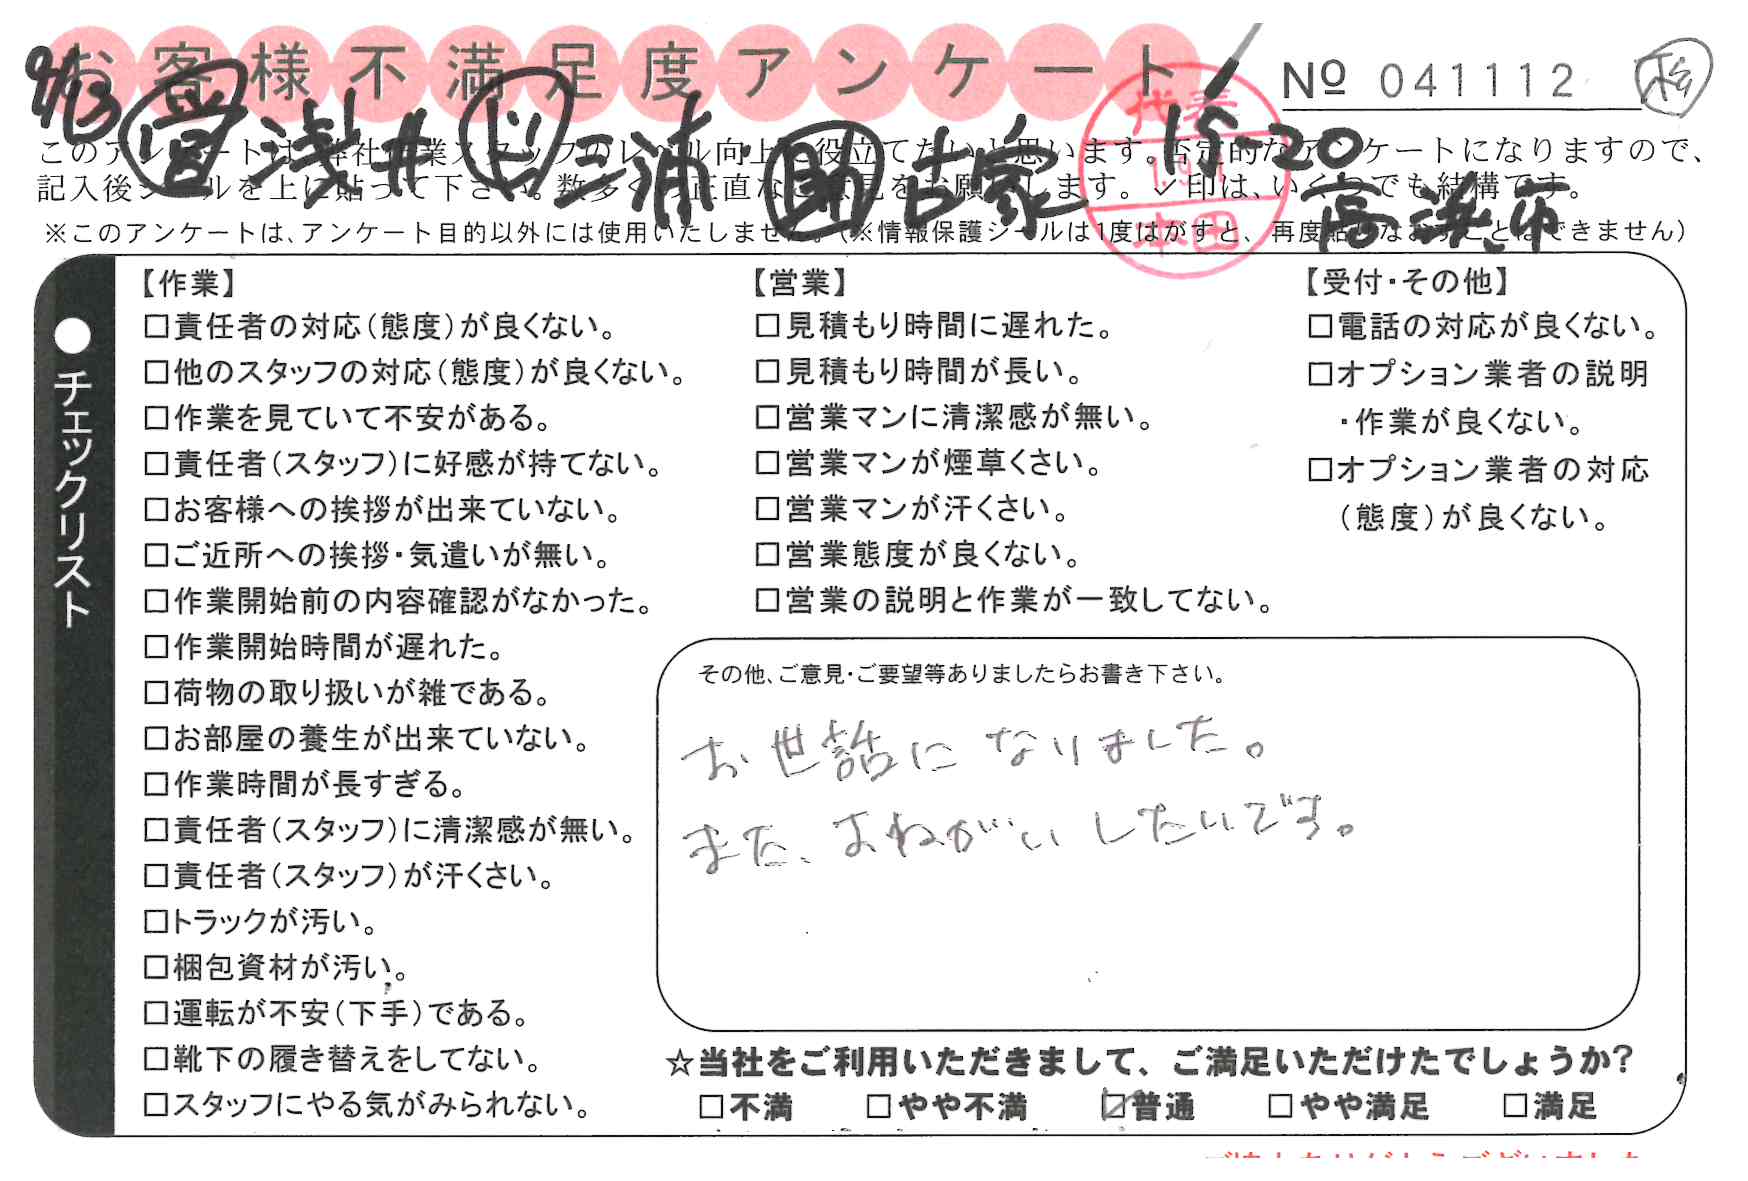 お客様不満足度アンケート
№ 041112
9/13 営 浅井 ド 三浦 助 古家 15-20 高浜市
代表 本田
このアンケートは、弊社作業スタッフのレベル向上に役立てたいと思います。否定的なアンケートになりますので、
記入後シールを上に貼って下さい。数多くの正直なご意見をお願いします。✓印は、いくつでも結構です。
※このアンケートは、アンケート目的以外には使用いたしません。(※情報保護シールは1度はがすと、再度貼りなおすことはできません)
●チェックリスト
【作業】
□責任者の対応(態度)が良くない。
□他のスタッフの対応(態度)が良くない。
□作業を見ていて不安がある。
□責任者(スタッフ)に好感が持てない。
□お客様への挨拶が出来ていない。
□ご近所への挨拶・気遣いが無い。
□作業開始前の内容確認がなかった。
□作業開始時間が遅れた。
□荷物の取り扱いが雑である。
□お部屋の養生が出来ていない。
□作業時間が長すぎる。
□責任者(スタッフ)に清潔感が無い。
□責任者(スタッフ)が汗くさい。
□トラックが汚い。
□梱包資材が汚い。
□運転が不安(下手)である。
□靴下の履き替えをしてない。
□スタッフにやる気がみられない。
【営業】
□見積もり時間に遅れた。
□見積もり時間が長い。
□営業マンに清潔感が無い。
□営業マンが煙草くさい。
□営業マンが汗くさい。
□営業態度が良くない。
□営業の説明と作業が一致してない。
【受付・その他】
□電話の対応が良くない。
□オプション業者の説明
・作業が良くない。
□オプション業者の対応
(態度)が良くない。
その他、ご意見・ご要望等ありましたらお書き下さい。
お世話になりました。
また、おねがいしたいです。
☆当社をご利用いただきまして、ご満足いただけたでしょうか?
□不満 □やや不満 ☑普通 □やや満足 □満足